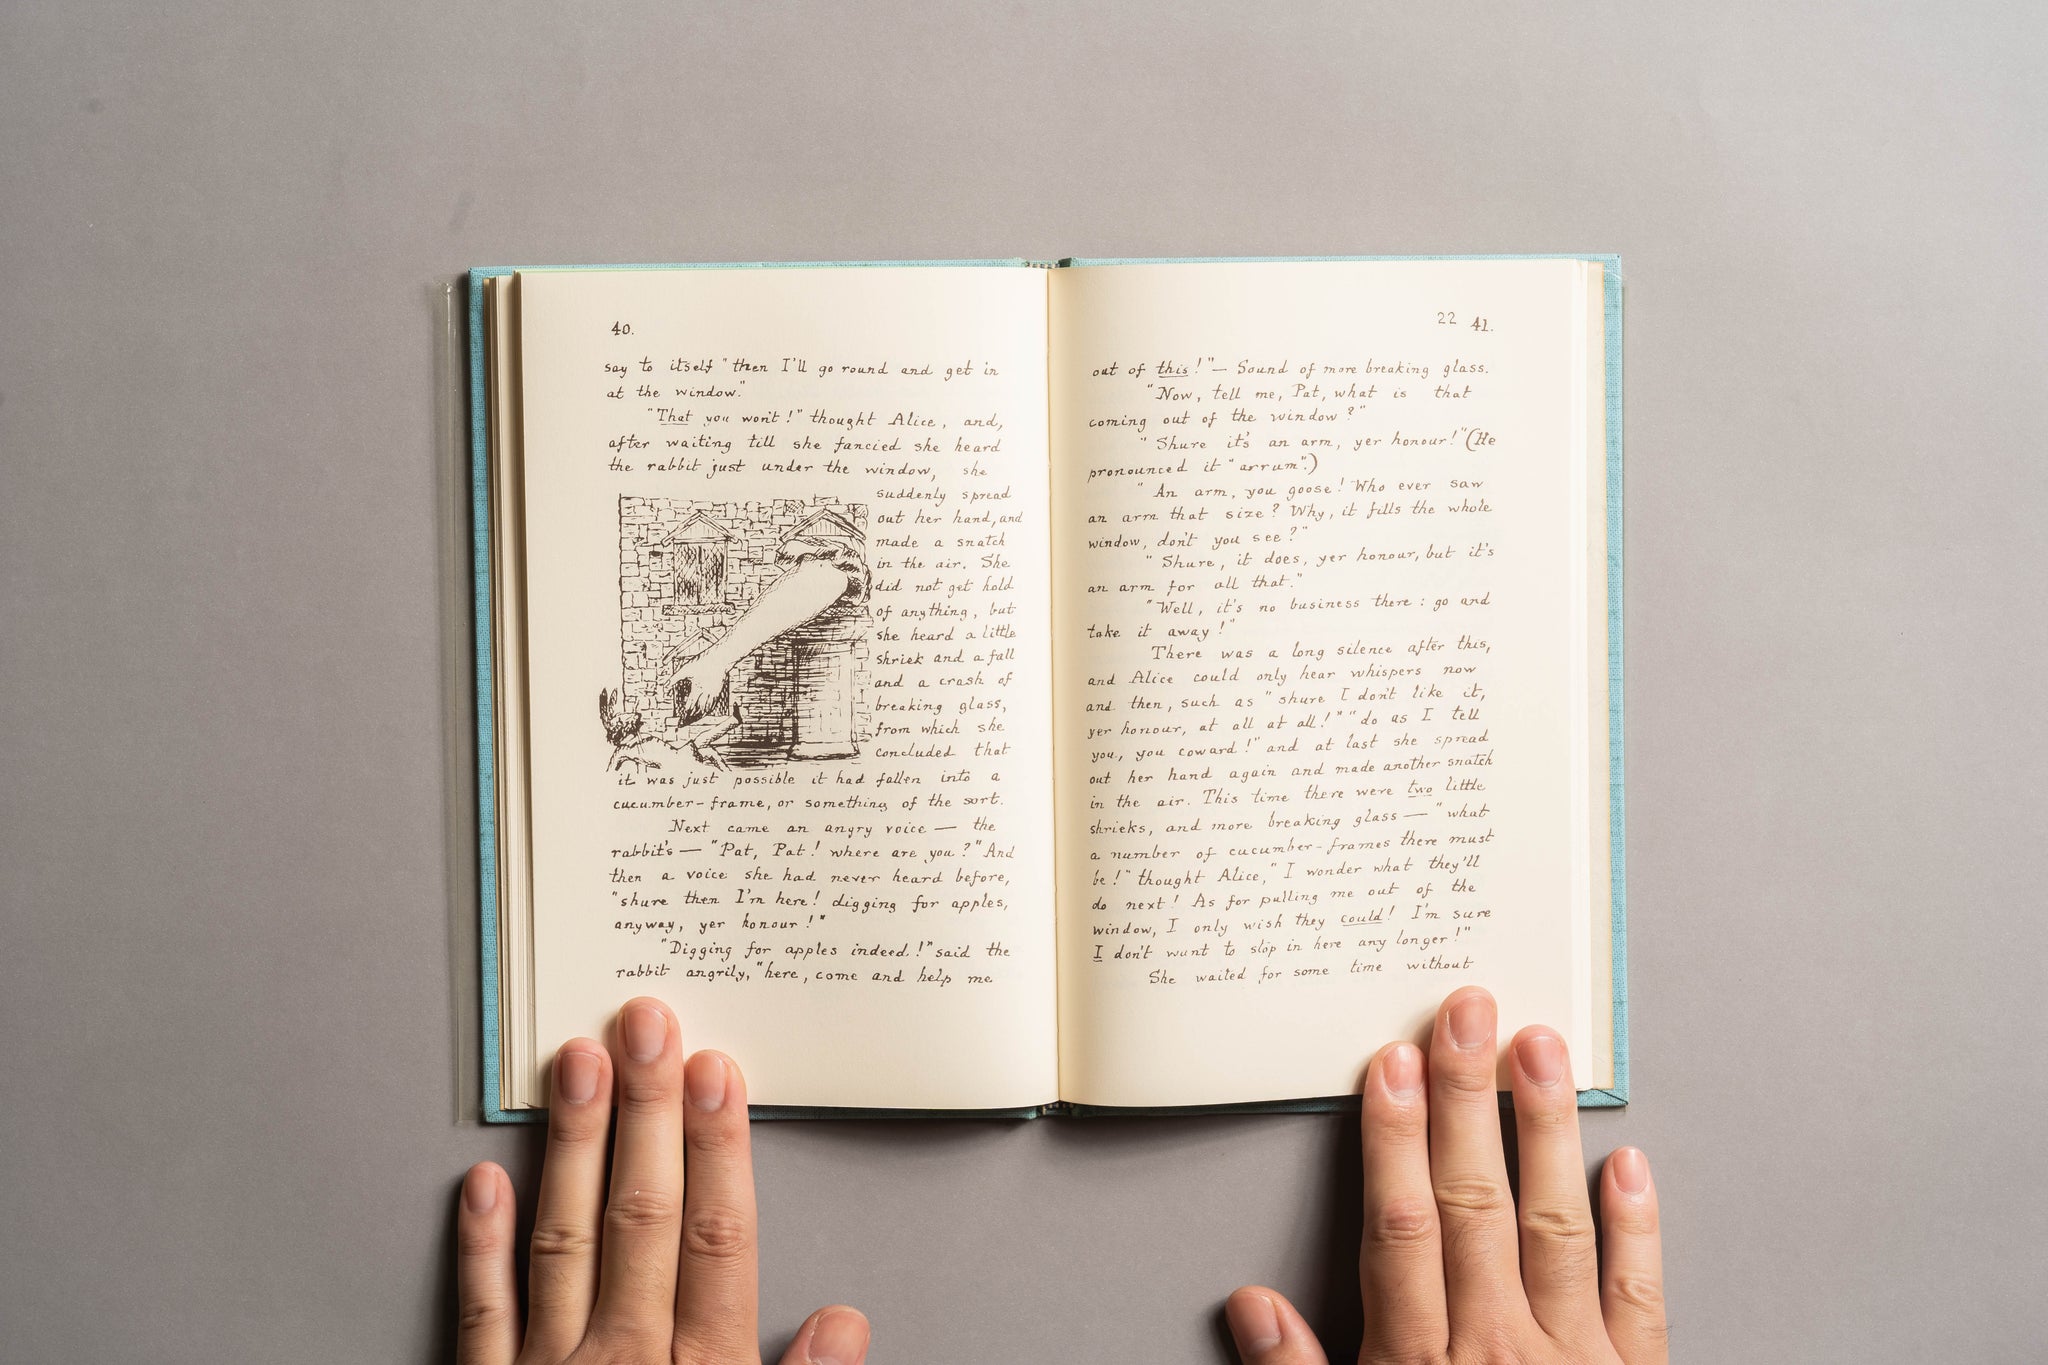 40.
say to itself "then I'll go round and get in
at the window."
"That you won't!" thought Alice, and,
after waiting till she fancied she heard
the rabbit just under the window, she
suddenly spread
out her hand, and
made a snatch
in the air. She
did not get hold
of anything, but
she heard a little
shriek and a fall
and a crash of
breaking glass,
from which she
concluded that
it was just possible it had fallen into a
cucumber-frame, or something of the sort.
Next came an angry voice — the
rabbit's — "Pat, Pat! where are you?" And
then a voice she had never heard before,
"shure then I'm here! digging for apples,
anyway, yer honour!"
"Digging for apples indeed!" said the
rabbit angrily, "here, come and help me
22 41.
out of this!" — Sound of more breaking glass.
"Now, tell me, Pat, what is that
coming out of the window?"
"Shure it's an arm, yer honour!" (He
pronounced it "arrum".)
"An arm, you goose! Who ever saw
an arm that size? Why, it fills the whole
window, don't you see?"
"Shure, it does, yer honour, but it's
an arm for all that."
"Well, it's no business there: go and
take it away!"
There was a long silence after this,
and Alice could only hear whispers now
and then, such as "shure I don't like it,
yer honour, at all at all!" "do as I tell
you, you coward!" and at last she spread
out her hand again and made another snatch
in the air. This time there were two little
shrieks, and more breaking glass — "what
a number of cucumber-frames there must
be!" thought Alice, "I wonder what they'll
do next! As for pulling me out of the
window, I only wish they could! I'm sure
I don't want to stop in here any longer!"
She waited for some time without